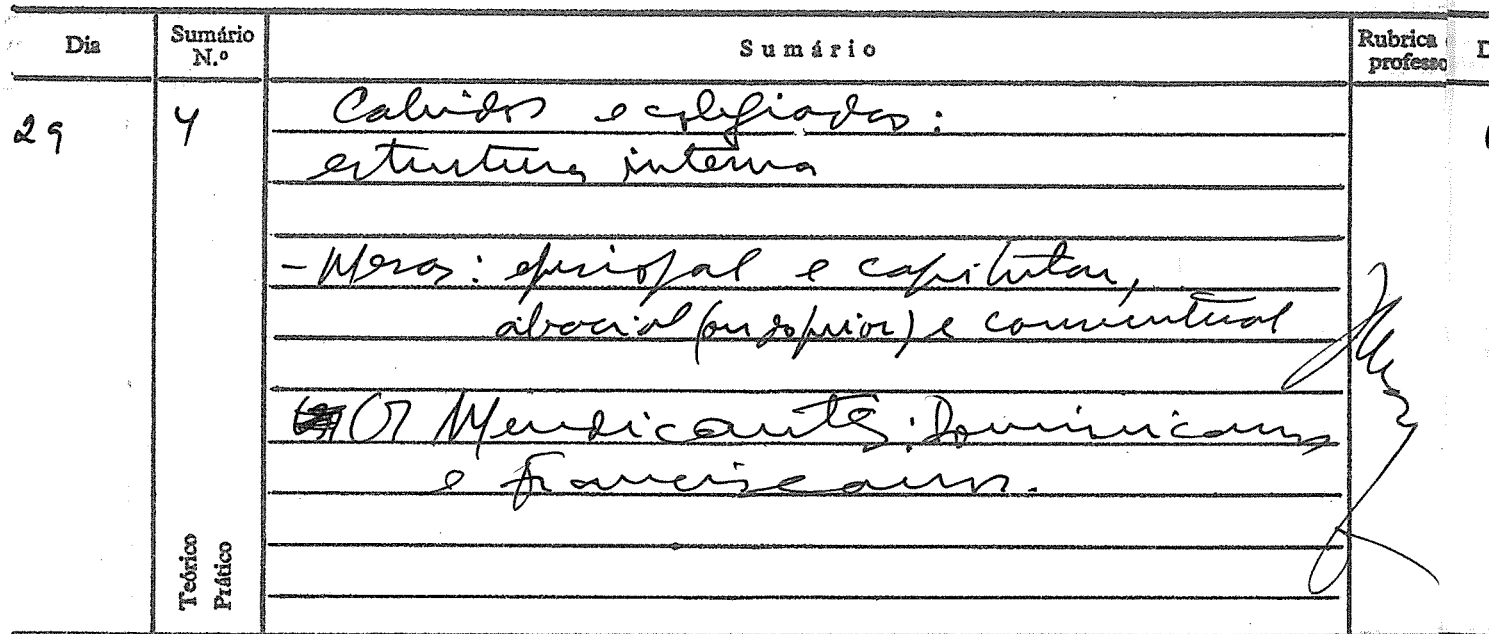 Dia
Sumário N.º
Sumário
Rubrica
professo
D
29
4
Cabidos e colegiadas:
estrutura interna
- Mesas: episcopal e capitular,
abacial (ou do prior) e conventual
Os Mendicantes: Dominicanos
e Franciscanos.
Teórico
Prático